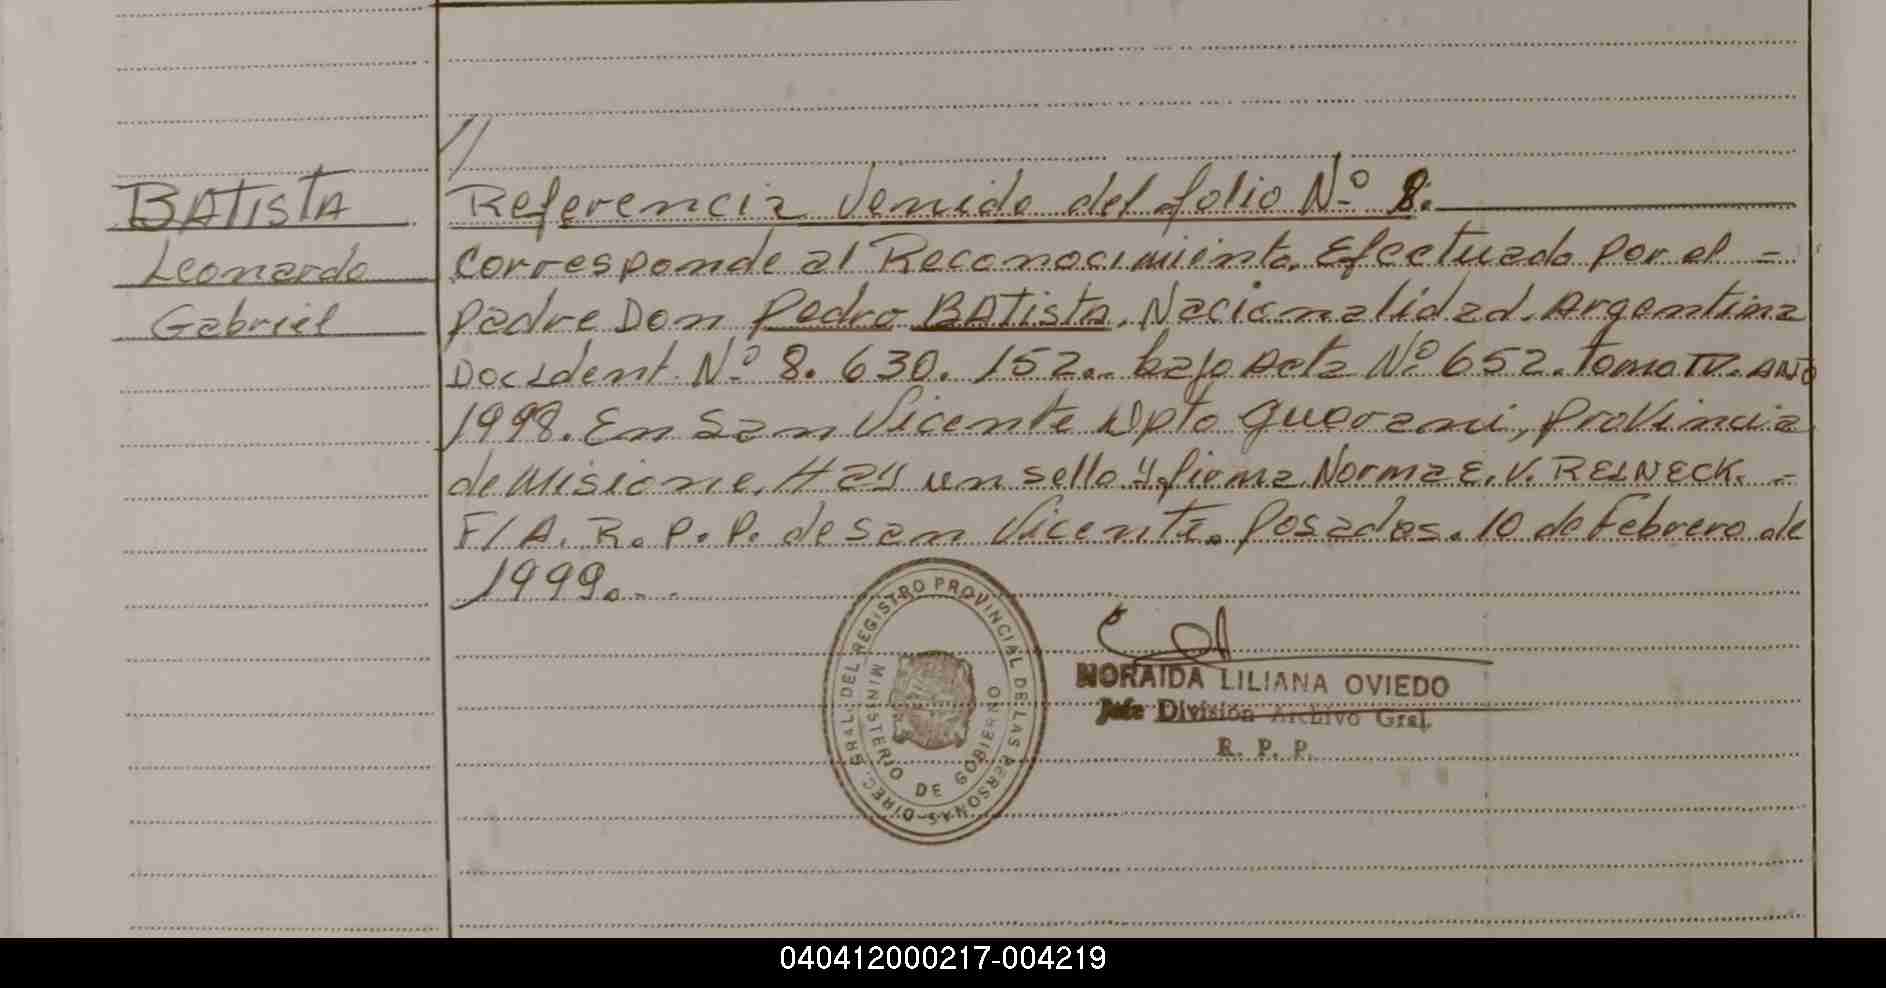 //
BATISTA
Leonardo
Gabriel
Referencia Venida del folio Nº 8.
Corresponde al Reconocimiento, Efectuado por el -
padre Don Pedro BATista, Nacionalidad. Argentina
Doc Ident. Nº 8. 630. 152.. bajo Acta Nº 652. Tomo IV. AÑO
1998. En San Vicente Dpto guarani, proVincia
de Misione, Hay un sello y firma Norma E. V. REINECK. -
F/A. R. P. P. de San Vicente. Posadas. 10 de Febrero de
1999. - -
DIREC. GRAL. DEL REGISTRO PROVINCIAL DE LAS PERSONAS
MINISTERIO DE GOBIERNO
NORAIDA LILIANA OVIEDO
Jefe División Archivo Gral.
R. P. P.
040412000217-004219